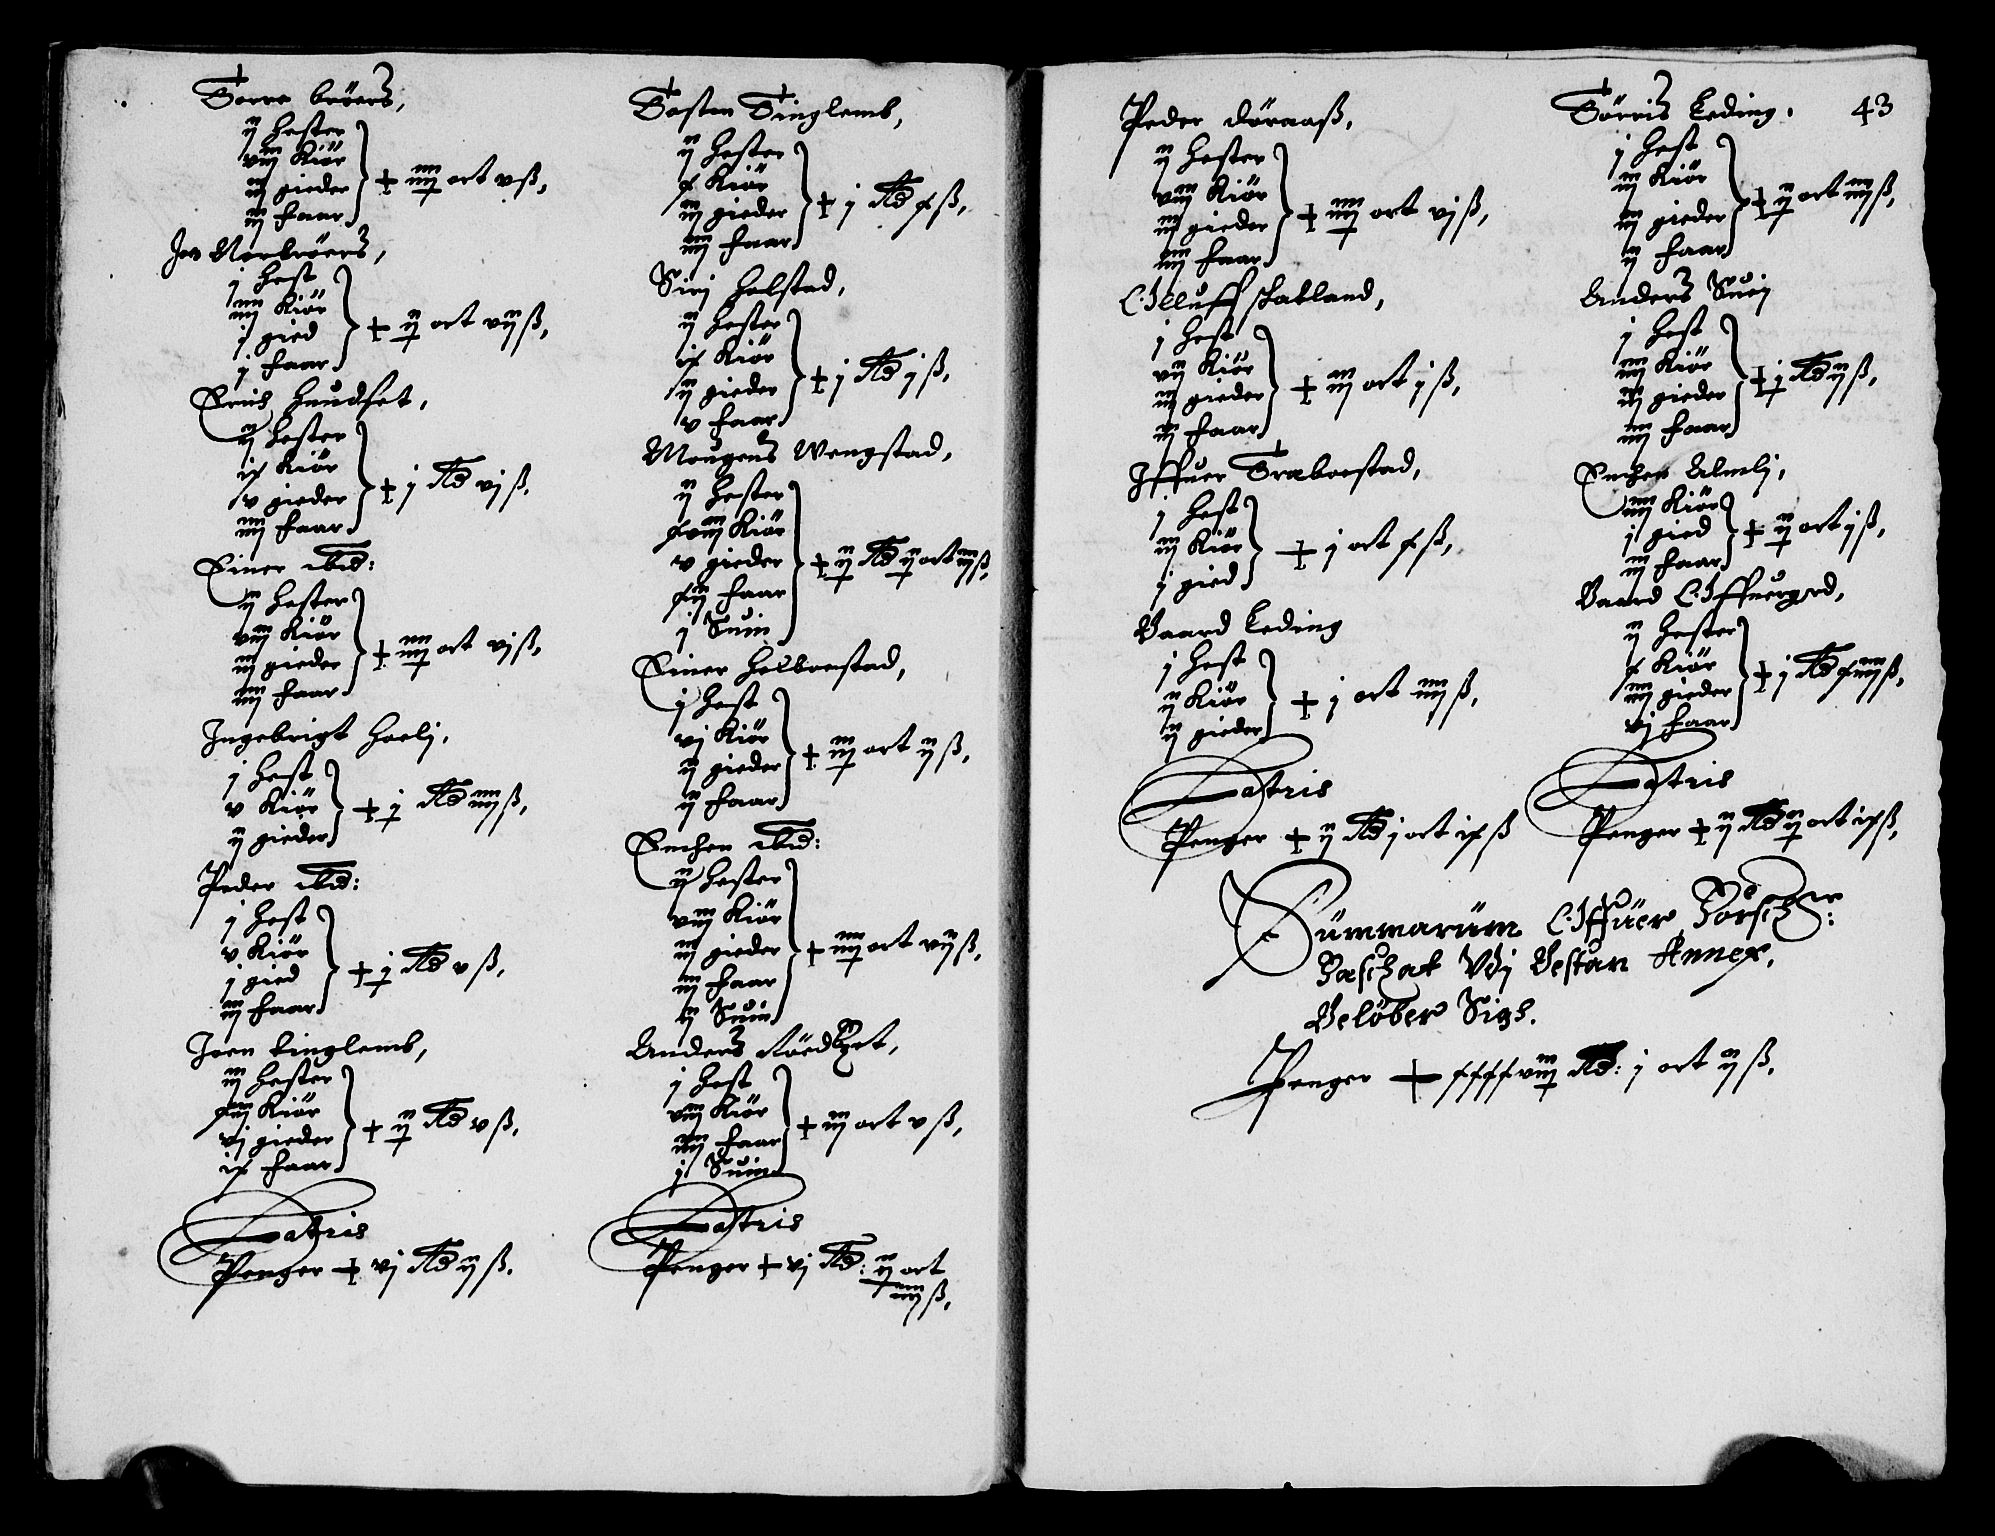 Torre brøers,
ij hester
viij Kiör
iij gieder
iij faar
+ iiij ort v ß,
Jon Norbröers,
j hest
iiij Kiör
j gied
j faar
+ ij ort vij ß,
hundset,
ij hester
ix Kiör
v gieder
iiij faar
+ j Rd vj ß,
Einer ibid:
ij hester
viij Kiör
iij gieder
iiij faar
+ iiij ort vj ß,
Ingebrigt Hoelj,
j hest
v Kiör
ij gieder
+ j Rd iiij ß,
Peder ibid:
j hest
v Kiör
j gied
iij faar
+ j Rd v ß,
Joen tinglemb,
iij hester
xiij Kiör
vj gieder
ix faar
+ ij Rd v ß,
Latris
Penger + vj Rd ij ß.
Tosten Tinglemb,
ij hester
x Kiör
iij gieder
iiij faar
+ j Rd x ß,
Sirj Holstad,
ij hester
ix Kiör
ij gieder
v faar
+ j Rd j ß,
Mougens Wengstad,
ij hester
xviij Kiör
v gieder
xij faar
j Suin
+ ij Rd ij ort iiij ß,
Einer Holboestad,
j hest
vj Kiör
ij gieder
ij faar
+ iij ort ij ß,
Enchen ibid:
ij hester
viij Kiör
iij gieder
iij faar
ij Suin
+ iiij ort vij ß,
Anders
j hest
viij Kiör
iiij faar
j Suin
+ iij ort v ß,
Latris
Penger + vj Rd: ij ort
iiij ß,
Peder döraaß,
ij hester
viij Kiör
iij gieder
iiij faar
+ iiij ort vj ß,
Olluff skatland,
j hest
vij Kiör
iij gieder
iij faar
+ iij ort j ß,
Iffuer Traboestad,
j hest
iij Kiör
j gied
+ j ort x ß,
Baard Leding
j hest
ij Kiör
ij gieder
+ j ort iiij ß,
Latris
Penger + ij Rd j ort ix ß
Törris Leding. 43
j hest
iij Kiör
iij gieder
ij faar
+ ij ort iiij ß,
Anders Suej
j hest
iiij Kiör
iij gieder
iiij faar
+ j Rd ij ß,
Enchen Almlj,
iiij Kiör
j gied
iij faar
+ ij ort j ß,
Baard Offuergrd,
ij hester
x Kiör
iiij gieder
vj faar
+ j Rd xiiij ß,
Latris
Penger + ij Rd ij ort ix ß,
Summarum Offuer
Vdj Annex,
Belöber Sigh.
Penger + xxxxviij Rd: j ort ij ß.